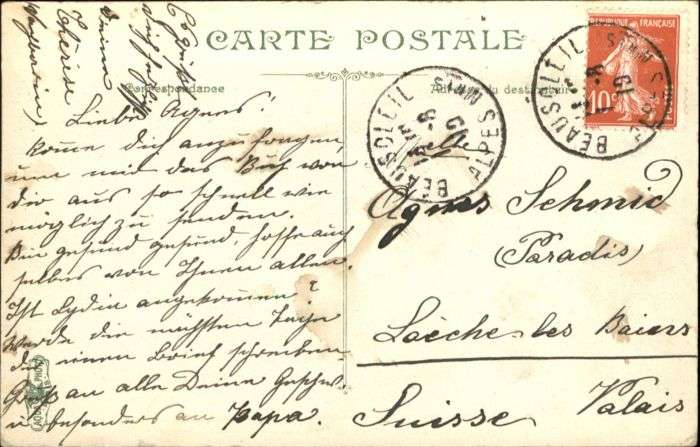 CARTE POSTALE
Correspondance
Adresse du destinataire
RÉPUBLIQUE FRANÇAISE
10c
BEAUSOLEIL
ALPES MMES
BEAUSOLEIL
ALPES MMES
Liebe Agnes!
komme dich anzufragen,
um mit das Buch von
dir aus so schnell wie
möglich zu senden.
Bin gesund gesund, hoffe auch
selbes von Ihnen allen.
Ist Lydia angekommen?
Werde die nächsten Tage
dir einen Brief schreiben
Gruß an alle Deine Geschw.
u. besonders an Papa.
Es grüßt
Dich
Deine
Thérèse
Agnes Schmid
(Paradis)
Loèche les Bains
Suisse Valais